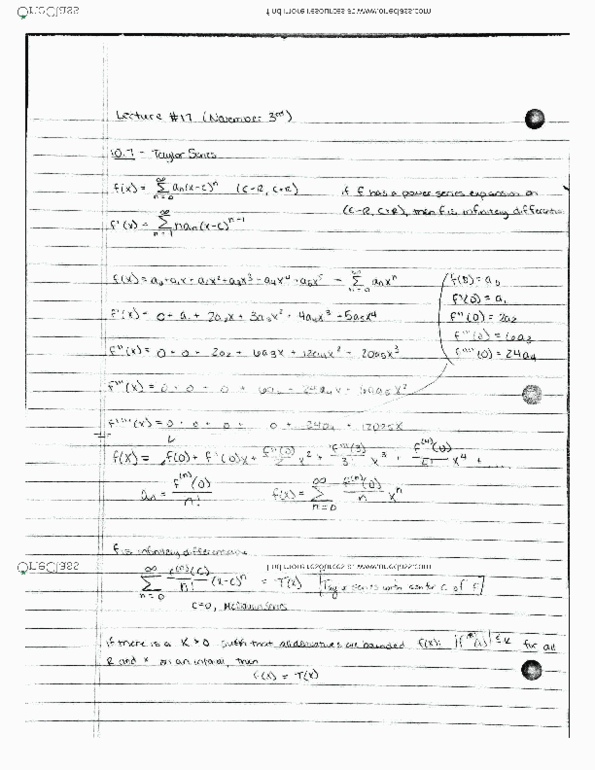 OneClass find more resources at www.oneclass.com
Lecture #17 (November 3rd)
10.7 - Taylor Series
f(x) = Σ_{n=0}^{∞} aₙ(x-c)ⁿ (c-R, c+R) if f has a power series expansion on
f'(x) = Σ_{n=1}^{∞} naₙ(x-c)ⁿ⁻¹ (c-R, c+R), then f is infinitely differentia
f(x) = a₀ + a₁x + a₂x² + a₃x³ + a₄x⁴ + a₅x⁵ = Σ_{n=0}^{∞} aₙxⁿ f(0) = a₀
f'(x) = 0 + a₁ + 2a₂x + 3a₃x² + 4a₄x³ + 5a₅x⁴ f'(0) = a₁
f''(0) = 2a₂
f''(x) = 0 + 0 + 2a₂ + 6a₃x + 12a₄x² + 20a₅x³ f'''(0) = 6a₃
f''''(0) = 24a₄
f'''(x) = 0 + 0 + 0 + 6a₃ + 24a₄x + 60a₅x²
f''''(x) = 0 + 0 + 0 + 0 + 24a₄ + 120a₅x
f(x) = f(0) + f'(0)x + f''(0)/ x² + f'''(3)/3! x³ + f⁽⁴⁾(0)/ x⁴ + ....
aₙ = f⁽ⁿ⁾(0)/n! f(x) = Σ_{n=0}^{∞} f⁽ⁿ⁾(0)/n! xⁿ
f is infinitely differentiable
OneClass find more resources at www.oneclass.com
Σ_{n=0}^{∞} f⁽ⁿ⁾(c)/n! (x-c)ⁿ = T(x) Taylor series with center c of f
c=0, Series
if there is a K > 0 such that all derivatives are bounded ≤ K for all
and x on an interval, then
f(x) = T(x)